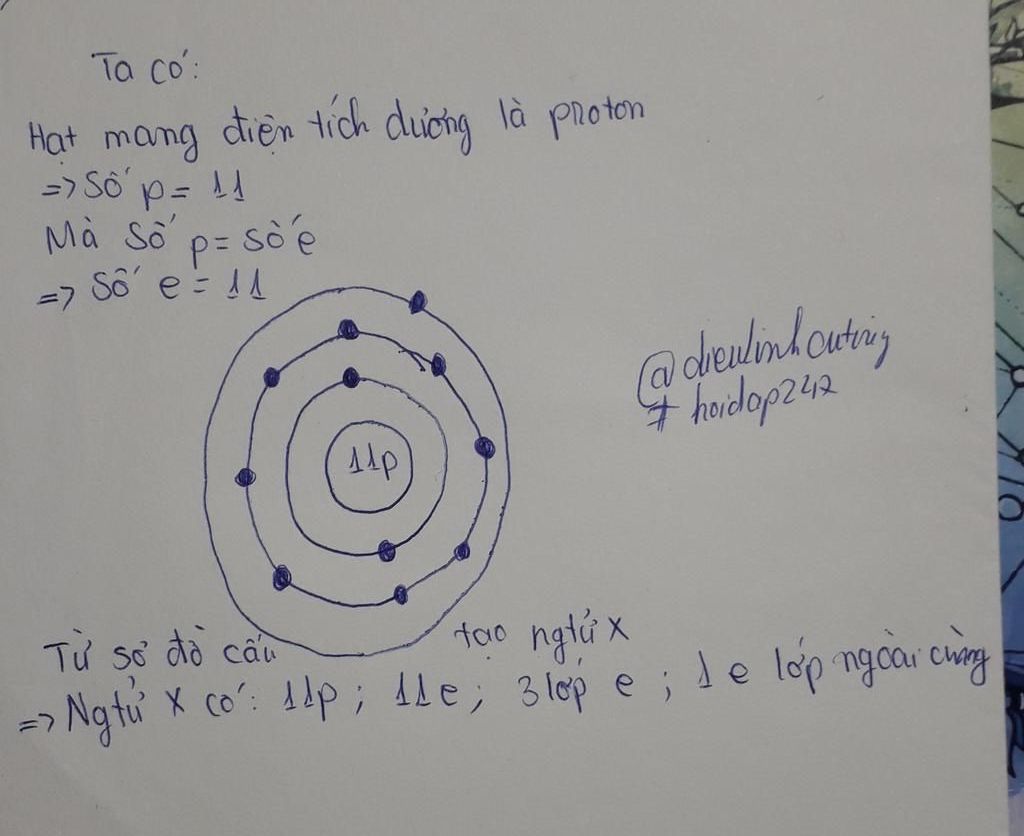 Ta có:
Hạt mang điện tích dương là proton
=> Số p = 11
Mà Số p = số e
=> Số e = 11
11p
@dieulinhcuting
# hoidap247
Từ sơ đồ cấu tạo ngtử X
=> Ngtử X có: 11p; 11e; 3 lớp e; 1e lớp ngoài cùng